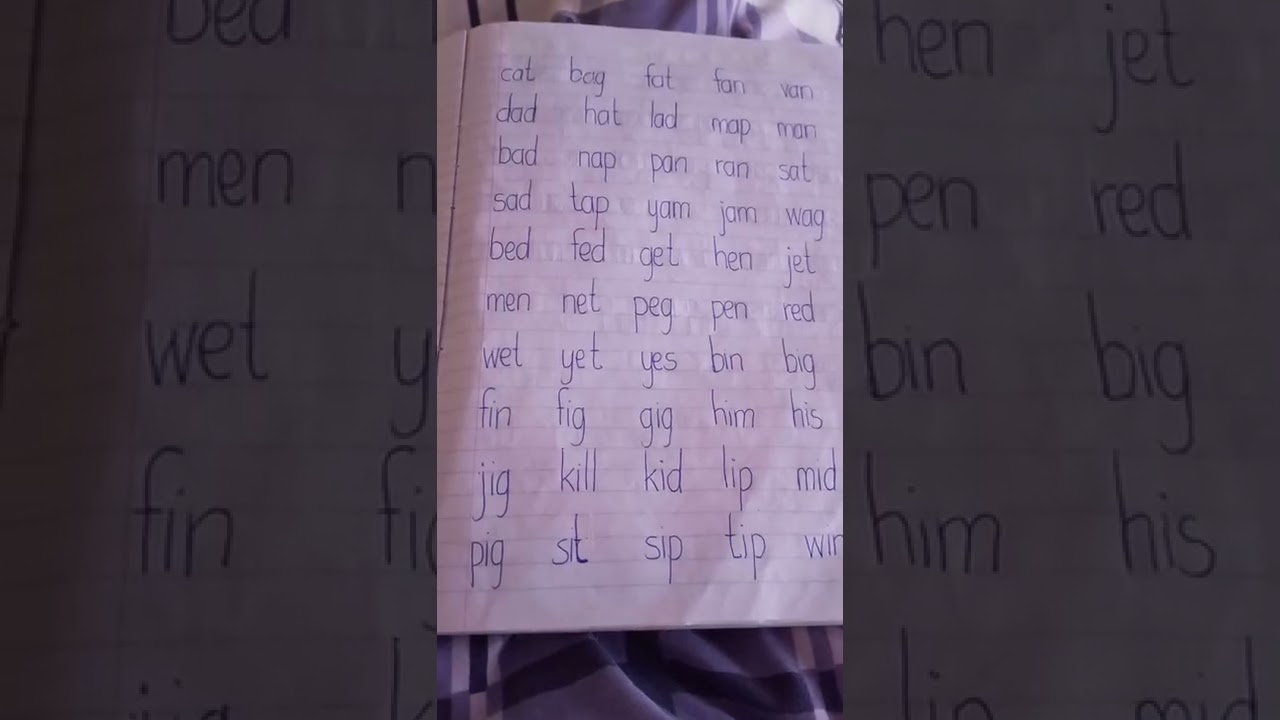 cat bag fat fan van
dad hat lad map man
bad nap pan ran sat
sad tap yam jam wag
bed fed get hen jet
men net peg pen red
wet yet yes bin big
fin fig gig him his
jig kill kid lip mid
pig sit sip tip